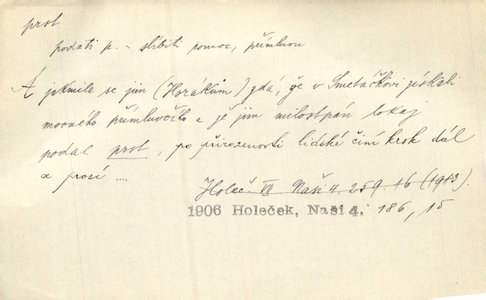 prst
podati p. - slíbiti pomoc, přímluvu
A jakmile se jim (Horákům) zdá, že v Smetáčkovi získali
mocného přímluvčího a je jim milostpán lokaj
podal prst, po přirozenosti lidské činí krok dál
a prosí ....
Holeč. VII Naši 4. 259, 16 (1913).
1906 Holeček, Naši 4. 186, 15